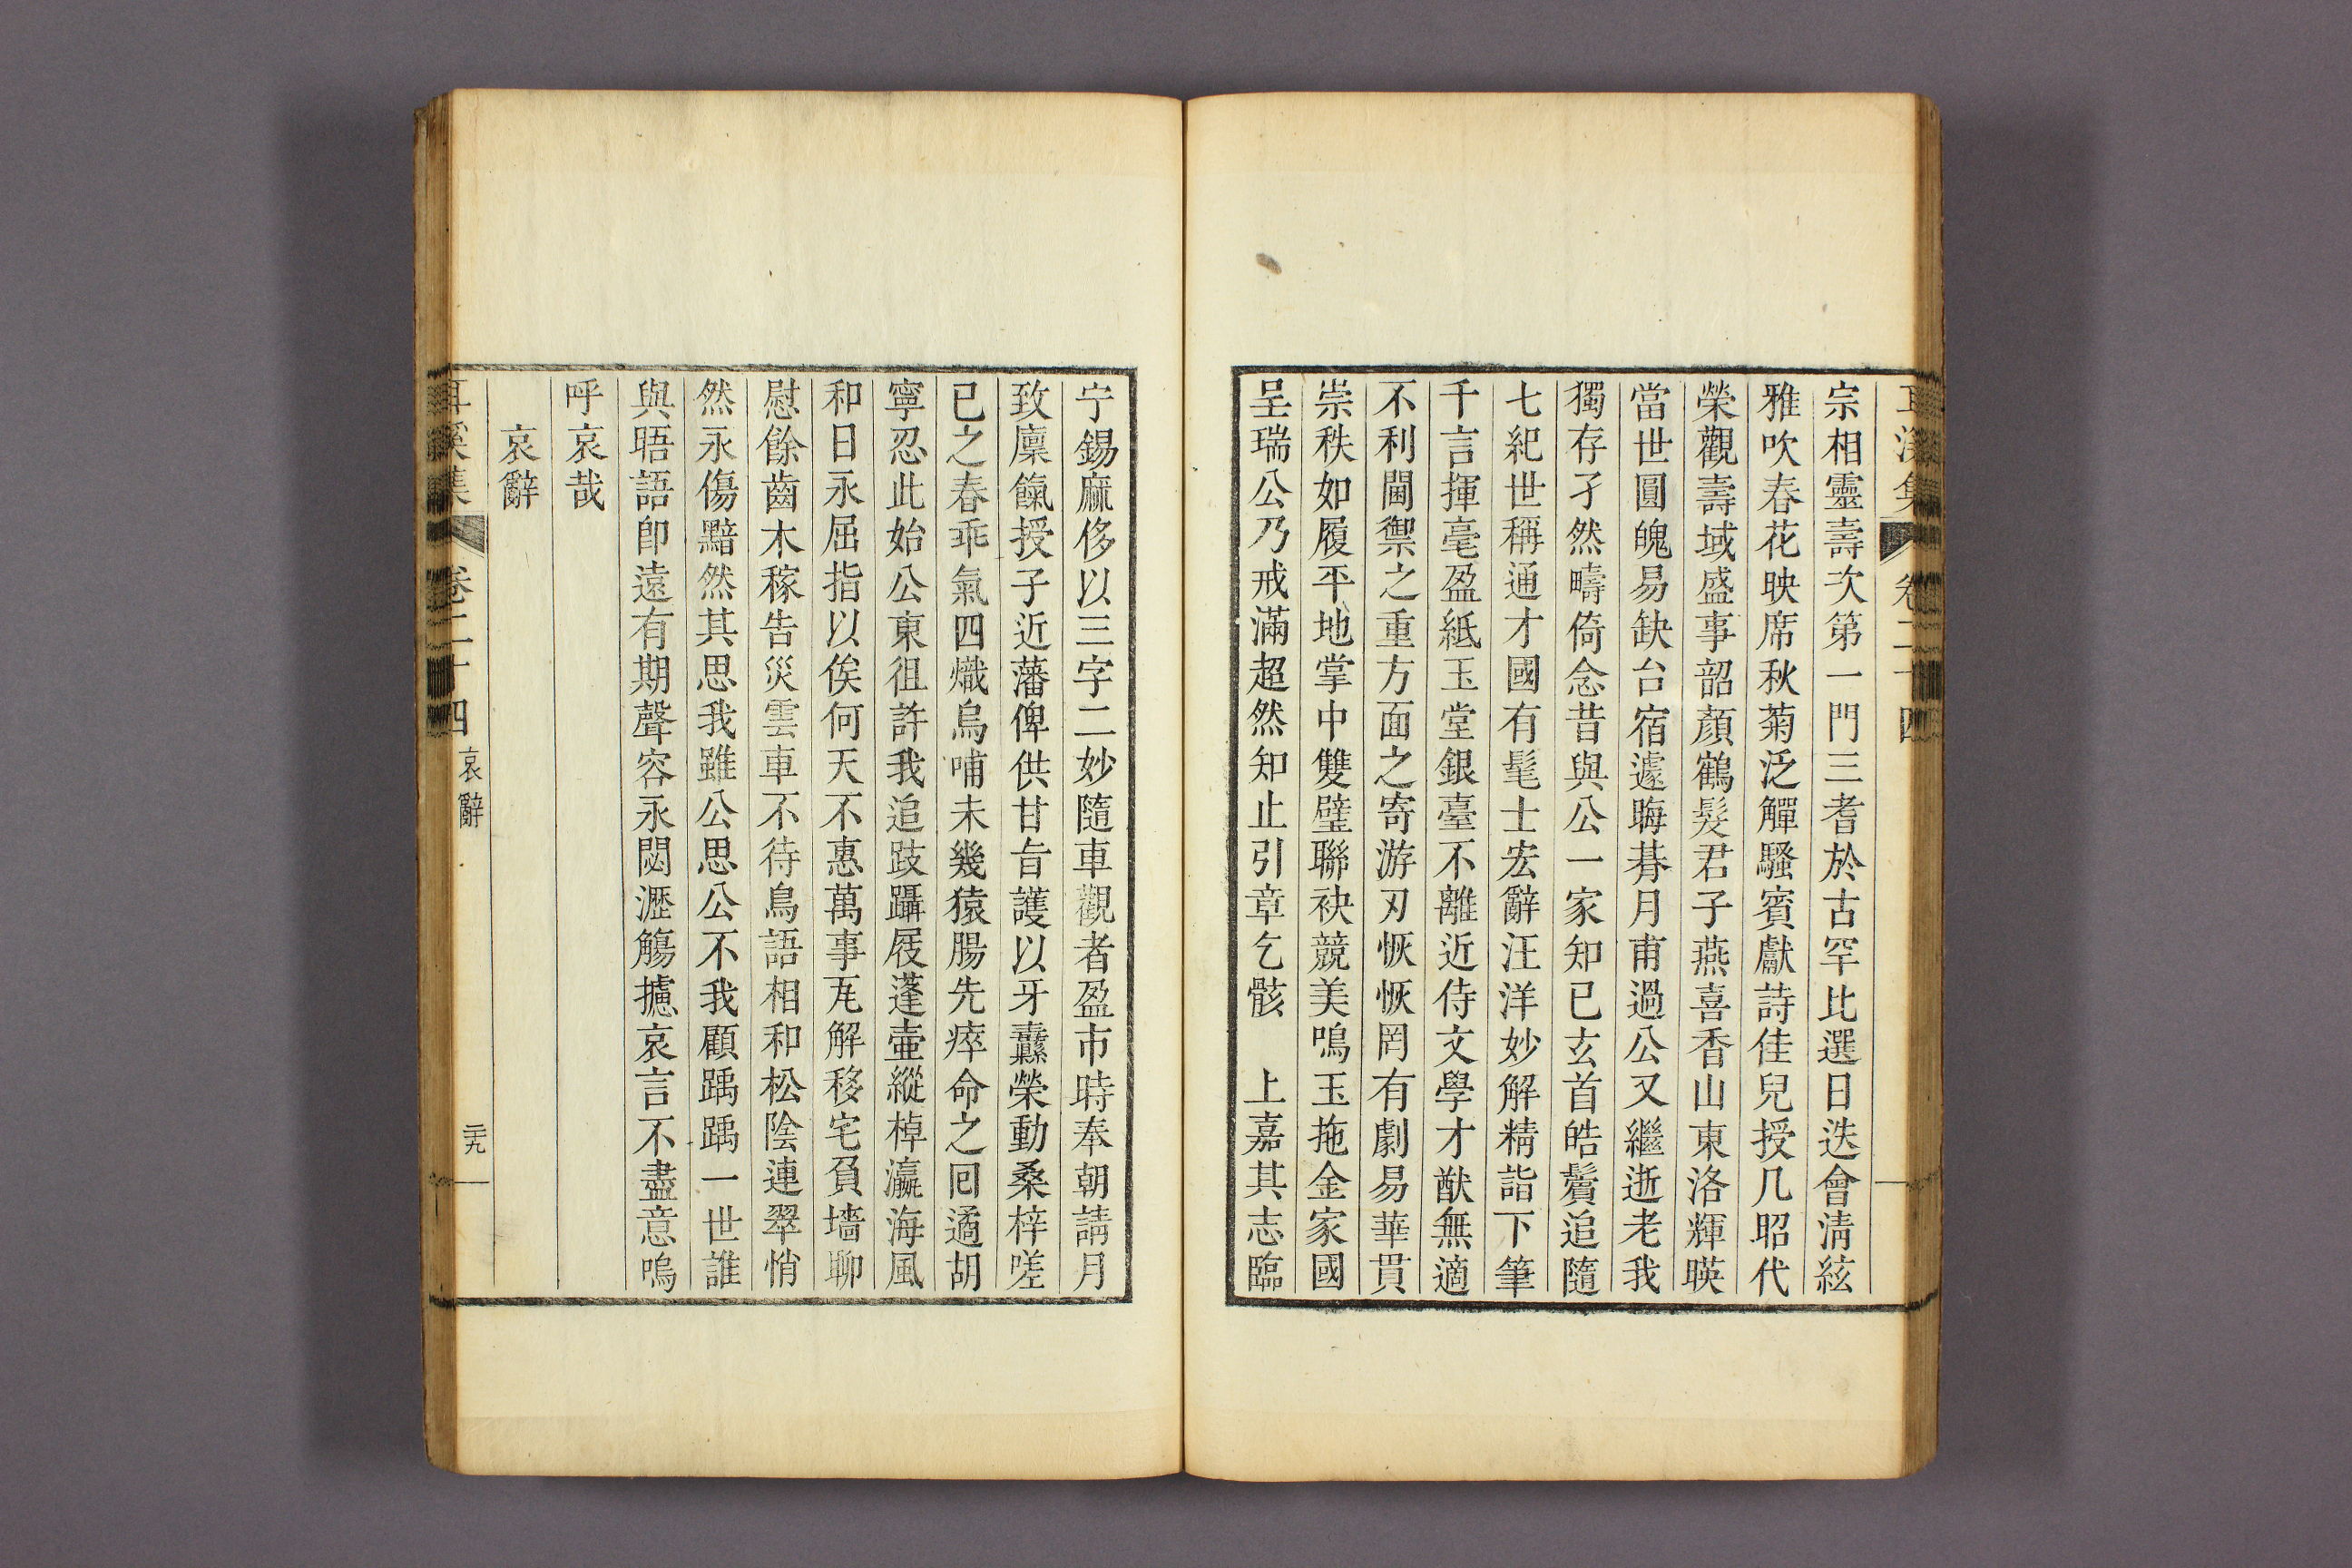 耳溪集 卷二十四
宗相靈壽次第一門三耆於古罕比選日迭會淸絃
雅吹春花映席秋菊泛觶騷賓獻詩佳兒授几昭代
榮觀壽域盛事韶顏鶴髮君子燕喜香山東洛輝暎
當世圓魄易缺台宿遽晦朞月甫過公又繼逝老我
獨存孑然疇倚念昔與公一家知已玄首皓鬢追隨
七紀世稱通才國有髦士宏辭汪洋妙解精詣下筆
千言揮毫盈紙玉堂銀臺不離近侍文學才猷無適
不利閫禦之重方面之寄游刃恢恢罔有劇易華貫
崇秩如履平地掌中雙璧聯袂競美鳴玉拖金家國
呈瑞公乃戒滿超然知止引章乞骸　上嘉其志臨
宁錫麻侈以三字二妙隨車觀者盈市時奉朝請月
致廩餼授子近藩俾供甘旨護以牙纛榮動桑梓嗟
已之春乖氣四熾烏哺未幾猿腸先瘁命之囘遹胡
寧忍此始公東徂許我追跂躡屐蓬壷縱棹瀛海風
和日永屈指以俟何天不惠萬事瓦解移宅負墻聊
慰餘齒木稼告災雲車不待鳥語相和松陰連翠悄
然永傷黯然其思我雖公思公不我顧踽踽一世誰
與晤語卽遠有期聲容永閟瀝觴攄哀言不盡意嗚
呼哀哉
哀辭
耳溪集 卷二十四 哀辭 二十九